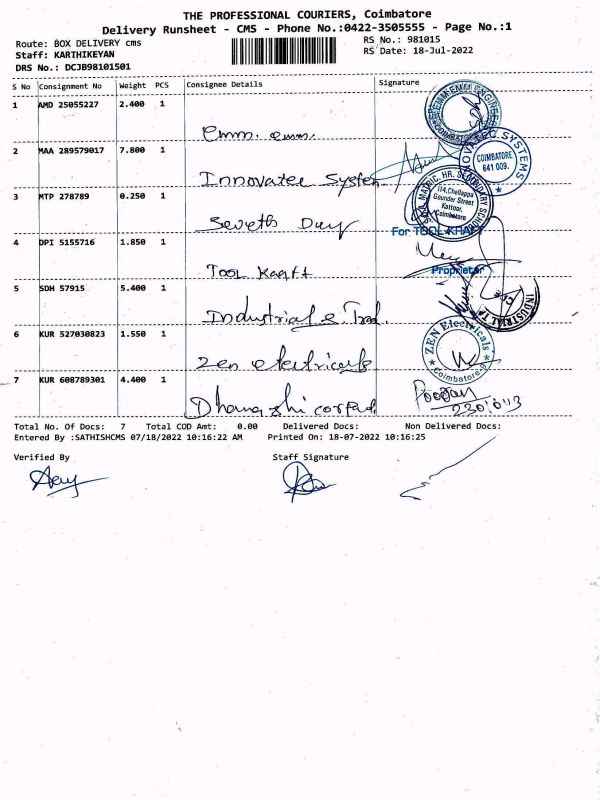 THE PROFESSIONAL COURIERS, Coimbatore
Delivery Runsheet - CMS - Phone No.:0422-3505555 - Page No.:1
Route: BOX DELIVERY cms RS No.: 981015
Staff: KARTHIKEYAN RS Date: 18-Jul-2022
DRS No.: DCJB98101501
S No Consignment No Weight PCS Consignee Details Signature
1 AMD 25055227 2.400 1
Emm. emm.
2 MAA 289579017 7.800 1
COIMBATORE
641 009.
Innovatec System
3 MTP 278789 0.250 1
114, Chellappa
Gounder Street
Kattoor,
Coimbatore
Seveth Day
For TOOL KRAFT
4 DPI 5155716 1.850 1
Proprietor
Tool Kraft
5 SDH 57915 5.400 1
INDUSTRIAL
Industrial & Trad.
6 KUR 527030823 1.550 1
ZEN Electricals
Coimbatore-9
Zen electricals
7 KUR 608789301 4.400 1
Total No. Of Docs: 7 Total COD Amt: 0.00 Delivered Docs: Non Delivered Docs:
Entered By :SATHISHCMS 07/18/2022 10:16:22 AM Printed On: 18-07-2022 10:16:25
Verified By Staff Signature